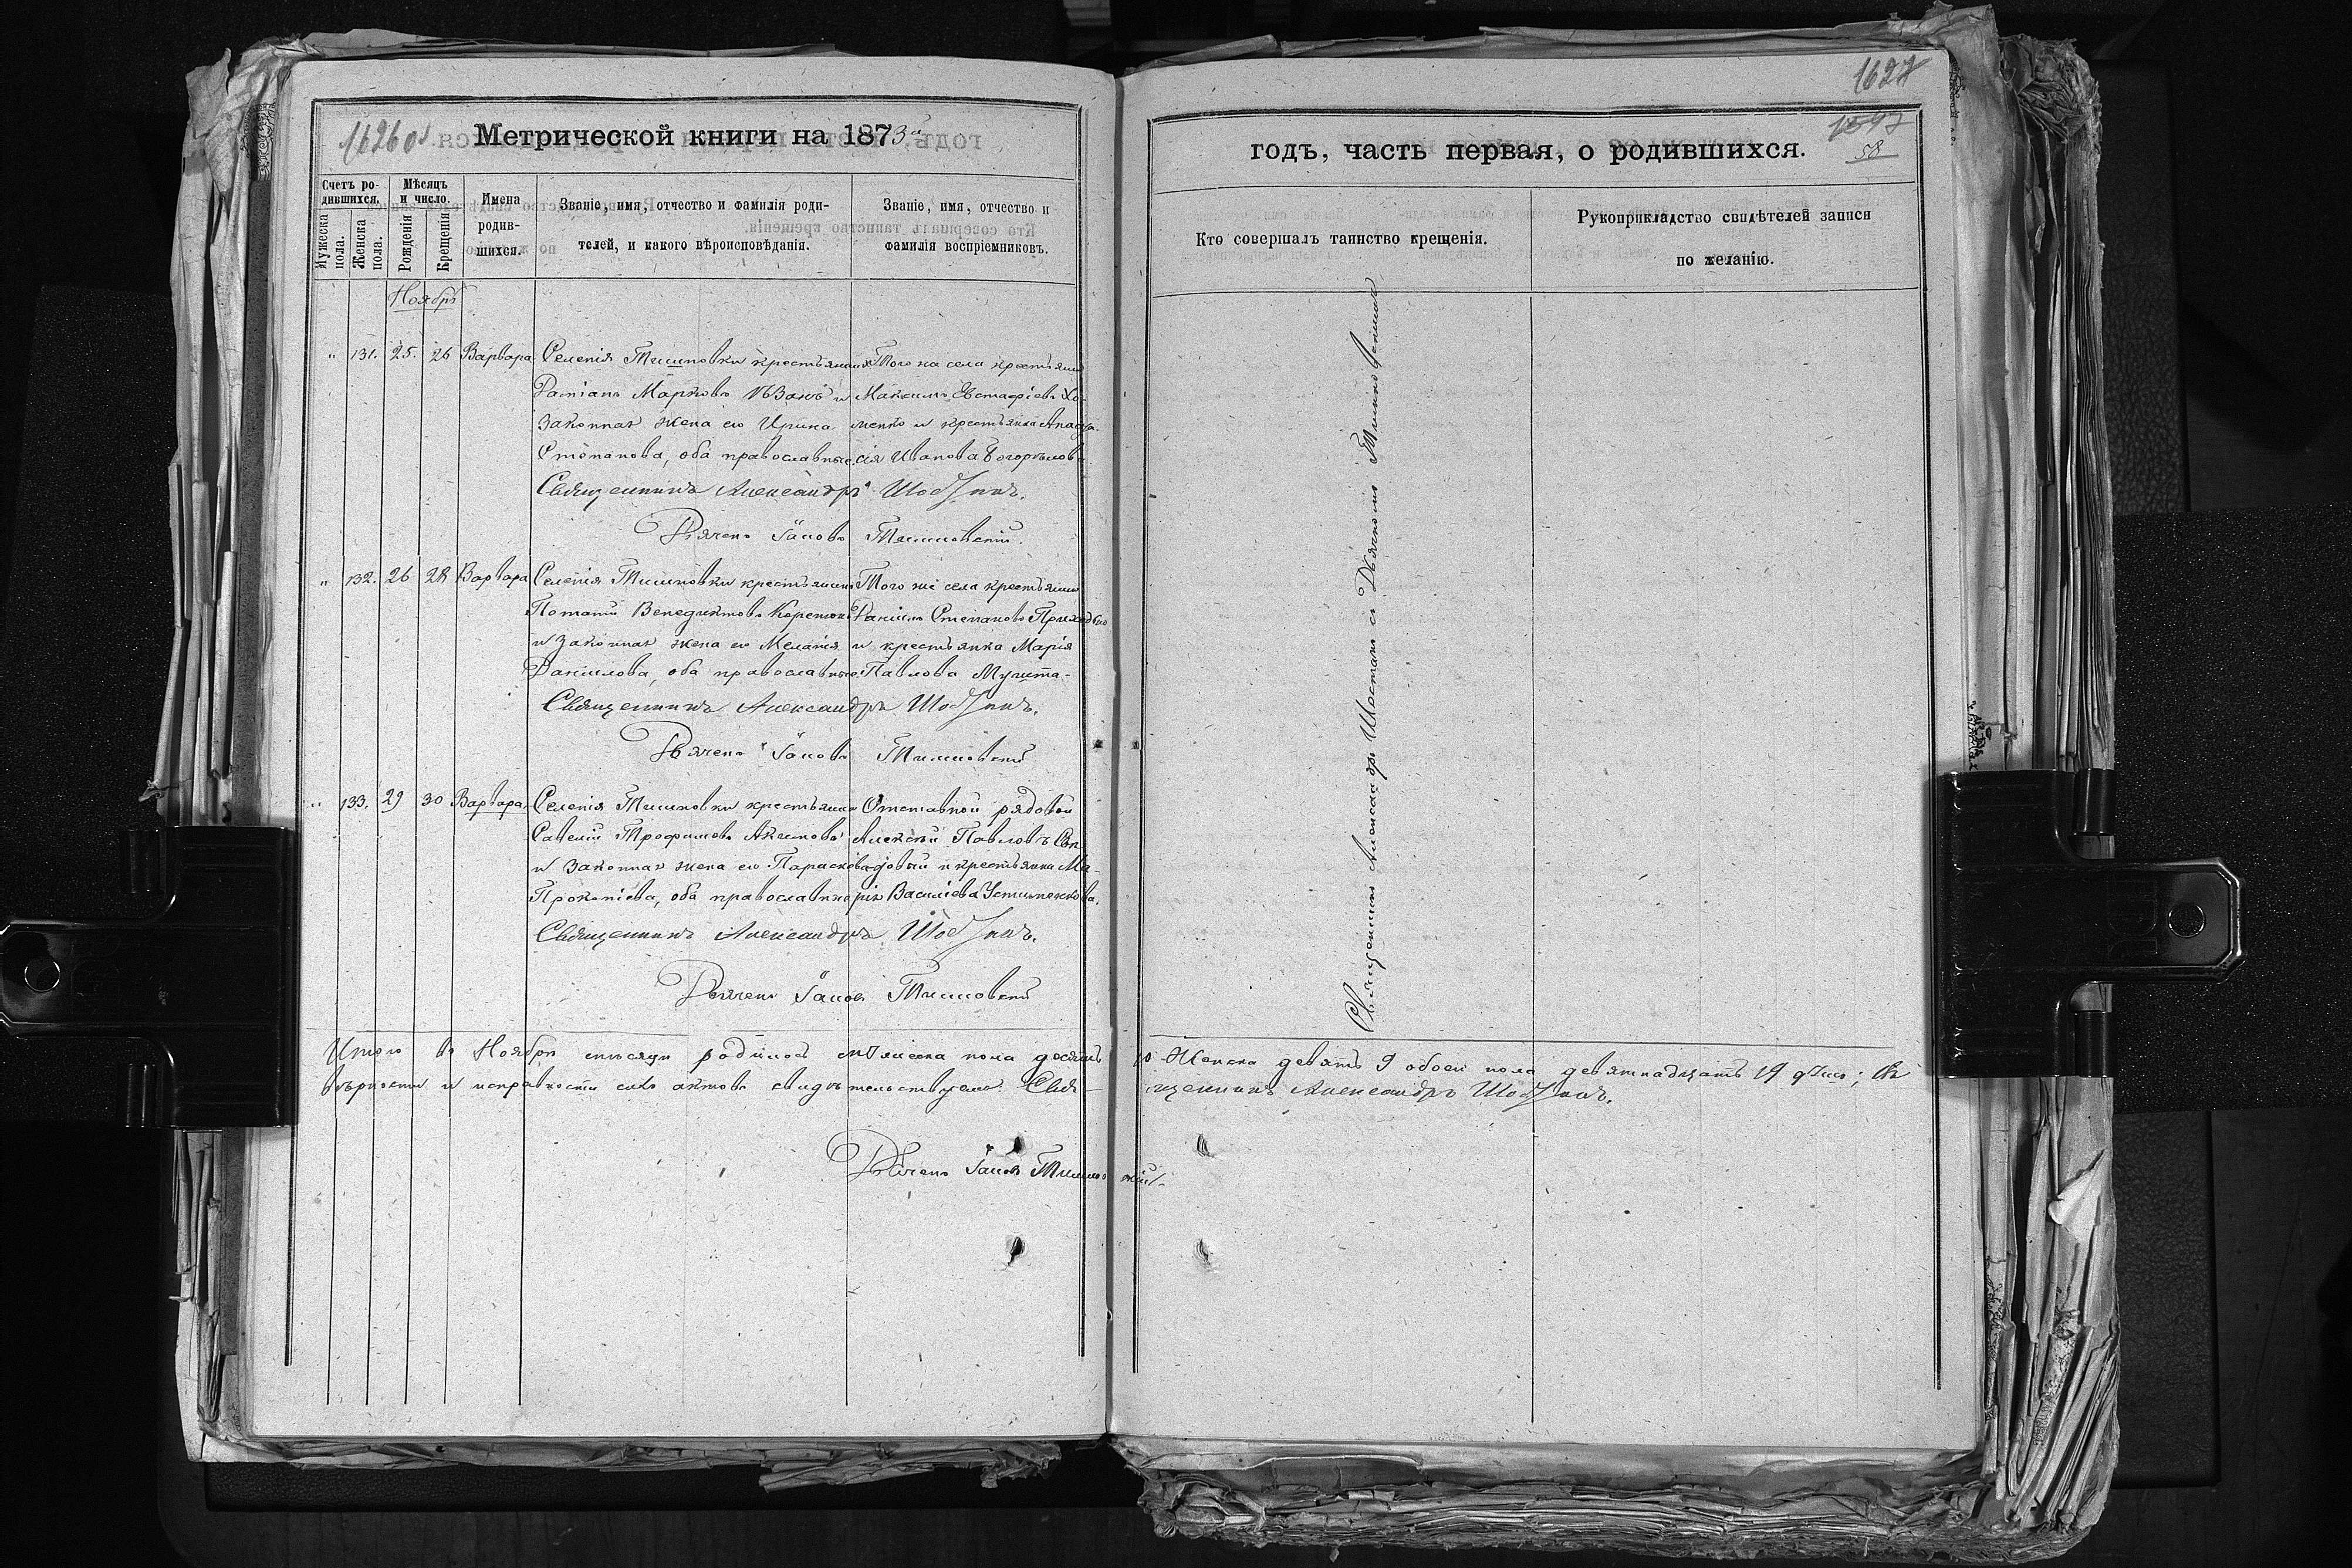 1626 об.
Метрической книги на 1873й
Счетъ родившихся.
Мужеска пола.
Женска пола.
Мѣсяцъ и число.
Рожденія
Крещенія
Имена родившихся.
Званіе, имя, отчество и фамилія родителей, и какого вѣроисповѣданія.
Званіе, имя, отчество и фамилія воспріемниковъ.
Ноябрь
" 131. 25. 26 Варвара
Селенія Тишковки крестьянинъ
Даміанъ Марковъ и
законная жена его Ирина
Стефанова, оба православные
Того же села крестьянинъ
Максимъ Евстафіевъ Хо-
менко и крестьянка Анаста-
сія Иванова
Священникъ Александръ Шостакъ.
Дьячекъ Іаковъ Тишковскій.
" 132. 26 28 Варвара
Селенія Тишковки крестьянинъ
Потапій Венедиктовъ
и законная жена его Меланія
Даніилова, оба православные
Того же села крестьянинъ
Даніилъ Степановъ Приходько
и крестьянка Марія
Павлова
Священникъ Александръ Шостакъ.
Дьячекъ Іаковъ Тишковскій
" 133. 29 30 Варвара
Селенія Тишковки крестьянинъ
Савелій Трофимовъ Акимовъ
и законная жена его Параскева
Прокопіева, оба православные
Отставной рядовой
Алексѣй Павловъ
и крестьянка Ма-
рія Васильева Устименкова.
Священникъ Александръ Шостакъ.
Дьячекъ Іаковъ Тишковскій
Итого въ Ноябрѣ мѣсяцѣ родилось мужеска пола десять 10 Женска девять 9 обоего пола девятнадцать 19 душъ; Въ
вѣрности и исправности сихъ актовъ свидѣтельствуемъ. Свя-
щенникъ Александръ Шостакъ.
Дьячекъ Іаковъ Тишковскій.
1627
1597
58
годъ, часть первая, о родившихся.
Кто совершалъ таинство крещенія.
Рукоприкладство свидѣтелей записи
по желанію.
Священникъ Александръ Шостакъ съ Дьячкомъ Тишковскимъ